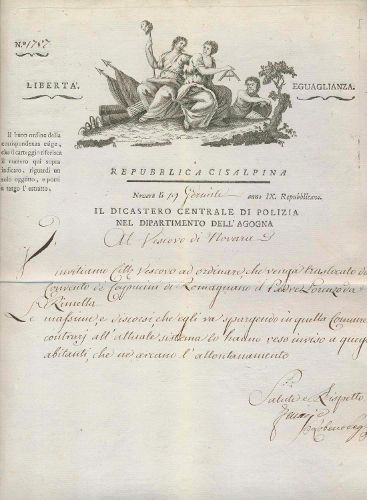 N.º 1787
LIBERTA'.
EGUAGLIANZA.
Il buon ordine della
corrispondenza esige,
che il carteggio riferisca
il numero qui sopra
indicato, riguardi un
solo oggetto, e porti
a tergo l'estratto.
REPUBBLICA CISALPINA
Novara li 19 Germile anno IX. Repubblicano.
IL DICASTERO CENTRALE DI POLIZIA
NEL DIPARTIMENTO DELL'AGOGNA
Al Vescovo di Novara
Invitiamo Citto Vescovo ad ordinare che venga traslocato dal
Convento de Cappucini di Romagnano il Padre Lorenzo da
Rimella
Le massime, e discorsi che egli va spargendo in quella Comune
contrarj all'attuale sistema lo hanno reso inviso a quegli
abitanti, che ne arcano l'allontanamento
Salute e Rispetto